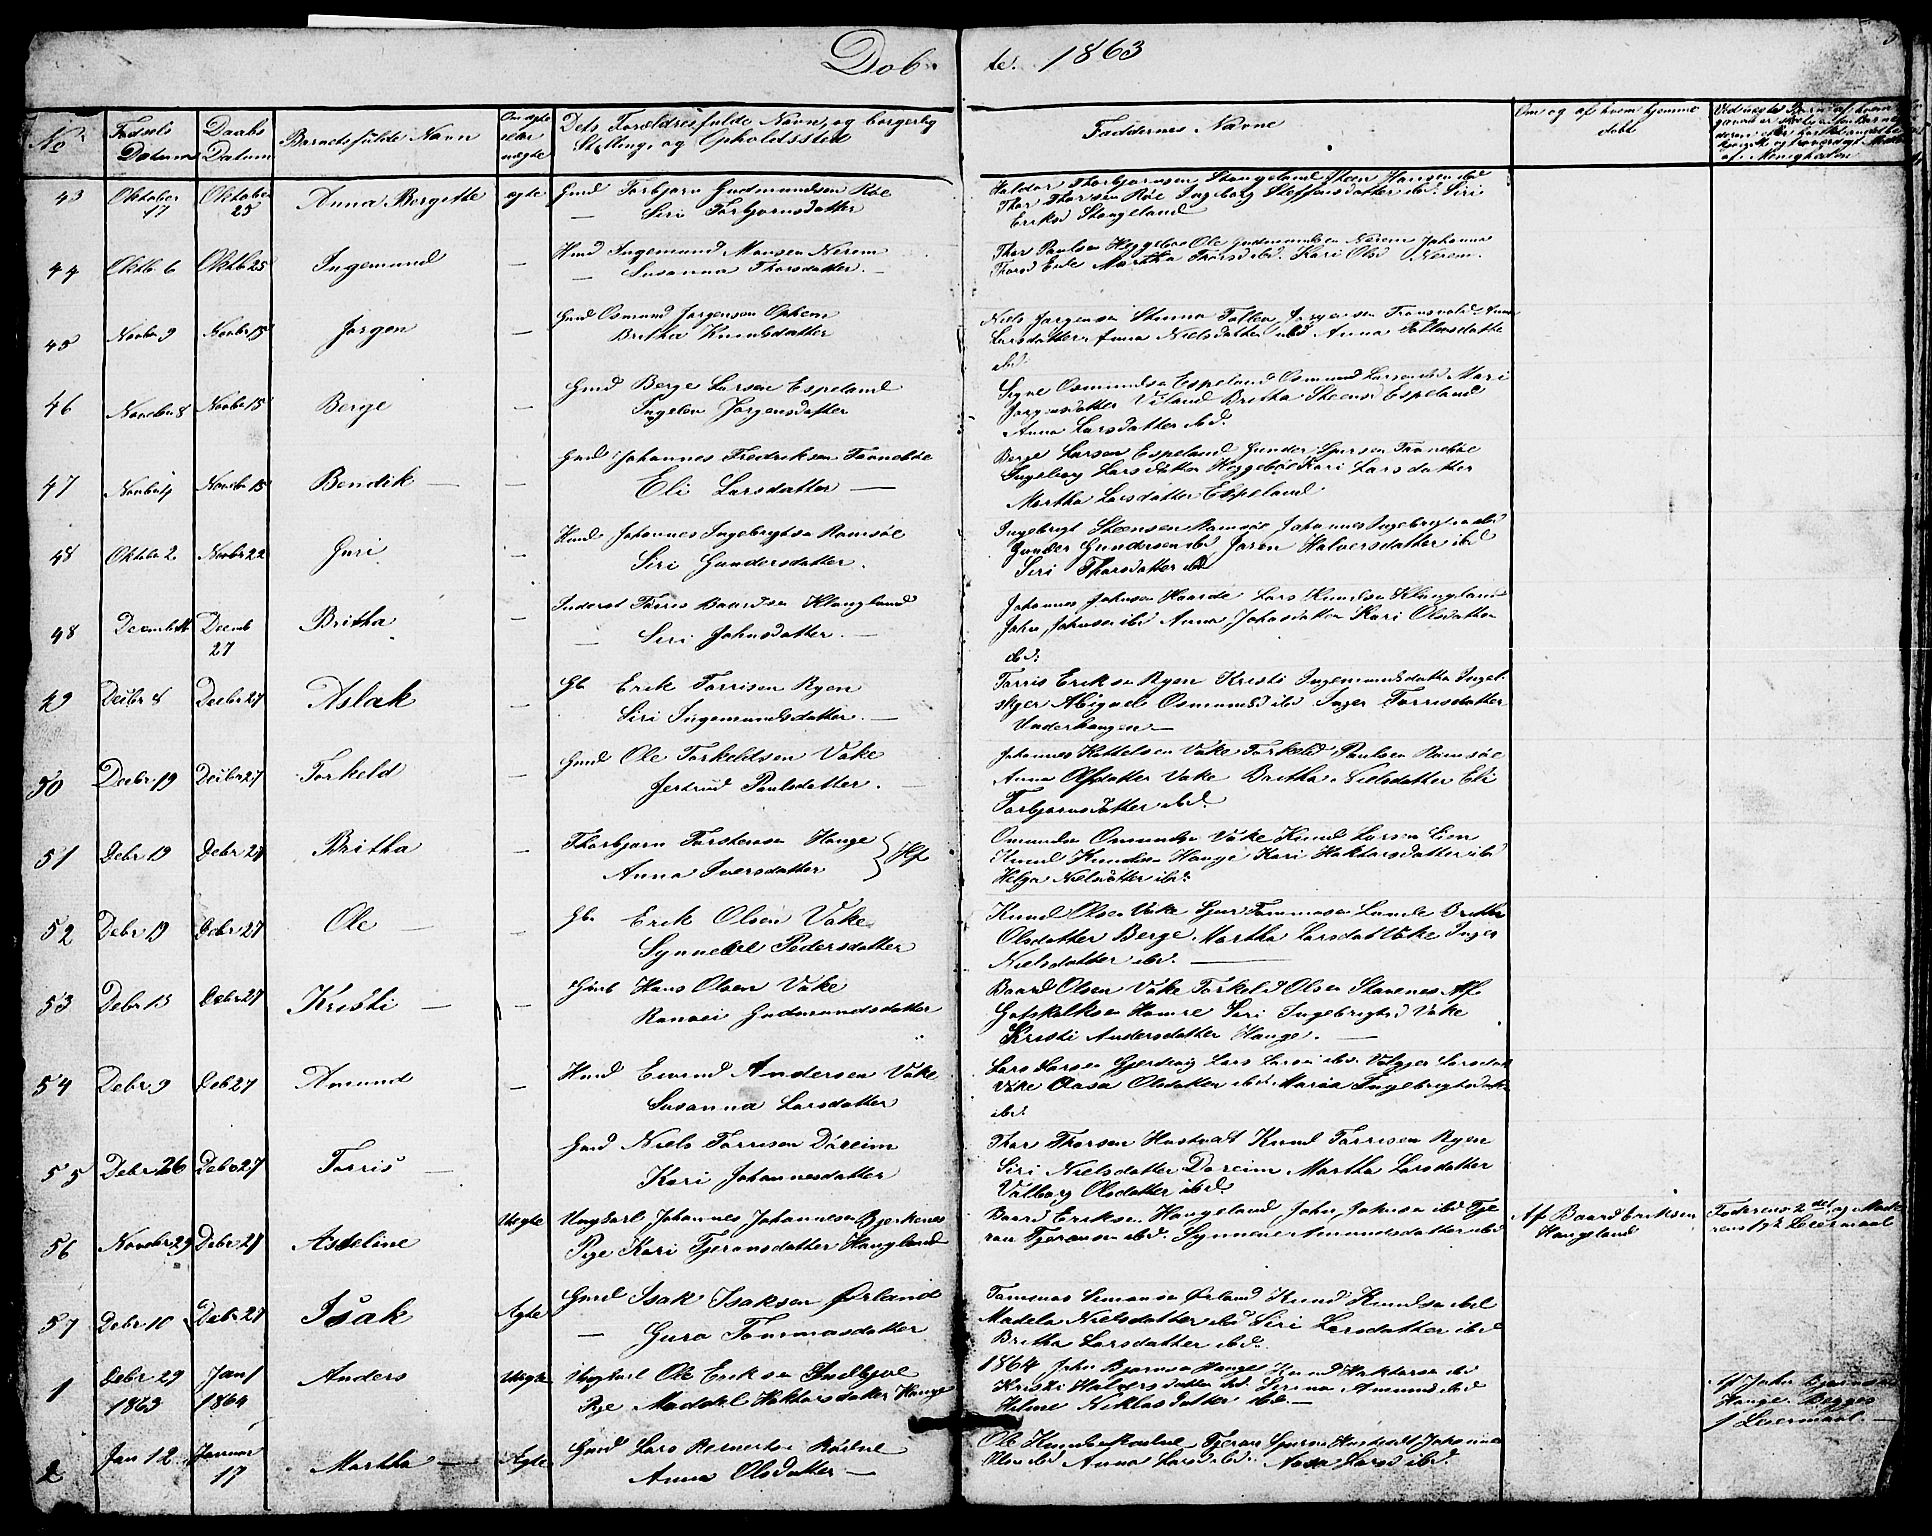 Dob te. 1863
No Fødsels Datum Daabs Datum Barnets fulde Navn Om ægte eller uægte Dets Forældres fulde Navn, og borgerlig Stilling, og Opholdssted Faddernes Navne Om og af hvem hjemme døbt
43 Oktober 17 Oktober 25 Anna Bergitte ægte Gmd Torbjørn Gudmundsen Røe
— Siri Torbjornsdatter
Haldor Thorbjørnsen Stangeland Steen Hansen ibd
Thor Thorsen Røe Ingeborg Steffensdatter ibd. Siri
Eriksd Stangeland
44 Oktb 6 Oktb 25 Ingemund — Hmd Ingemund Monsen Nerem
— Susanna Thorsdatter —
Thor Paulsen Heggeboe Ole Gudmundsen Nerem Johanna
Thorsd Eide Martha Thorsd ibd. Kari Olsd Nerem.
45 Novbr 9 Novbr 15 Jørgen — Gmd Osmund Jorgensen Opheim
Britha Knudsdatter
Niels Jorgensen Stunna Tollev Jorgensen
Larsdatter Anna Nielsdatter ibd Anna Tollevsdatte
ibd
46 November 8 Novbr 15 Berge — Gmd Berge Larsen Espeland
Ingelev Jorgensdatter
Osmundsen Espeland Osmund Larsen ibd Mari
Jorgensdatter Viland Britha Steensd Espeland
Anna Larsdatter ibd.
47 Novbr 4 Novbr 15 Bendik — — Gmd Johannes Fredriksen Tonneboe
Eli Larsdatter —
Berge Larsen Espeland Gunder Sjursen Tonneboe
Ingeborg Larsdatter Heggeboe Kari Larsdatter
Martha Larsdatter Espeland
48 Oktober 2 Novbr 22 Guri — Hmd Johannes Ingebrigtsen Ramsøe
Siri Gundersdatter.
Ingebrigt Steensen Ramsøe Johannes Ingebrigtsen ibd
Gunder Gundersen ibd Joren Halversdatter ibd
Siri Thorsdatter ibd
48 Decemb 27 Britha — Inderst Torris Baardsen Klungland
— Siri Johnsdatter. —
Johannes Johnsen Haarde Lars Knudsen Klungland
John Johnsen ibd Anna Johnsdatter Kari Olsdatter
ibd:
49 Decbr 8 Decbr 27 Aslak — Gb. Erik Torrisen Ryen
Siri Ingemundsdatter. —
Torris Eriksen Ryen Kristi Ingemundsdatter
Abigael Osmundsd ibd Inger Torrisdatter
Underhaugen —
50 Decbr 19 Decbr 27 Torkeld — Gmd Ole Torkeldsen Vake
Jertrud Paulsdatter. —
Johannes Kittelsen Vake Torkeld Paulsen Ramsøe
Anna Olsdatter Vake Britha Nielsdatter Eli
Torbjornsdatter ibd
51 Debr 19 Debr 27 Britha — Thorbjørn Torstensen Hauge } Hf
Anna Iversdatter
Osmundsen Vake Knud Larsen Lien
Knudsen Hauge Kari Haktorsdatter ibd
Helga Nielsdatter ibd:
52 Debr 19 Debr 27 Ole — — Gb. Erik Olsen Vake
Synneve Pedersdatter
Knud Olsen Vake Sjur Tommesen Lunde Britha
Olsdatter Berge. Martha Larsdat Vake Inger
Nielsdatter ibd. —
53 Debr 15 Debr 27 Kristi — — Gmd Hans Olsen Vake
Ranvei Gudmundsdatter
Baard Olsen Vake Torkel Olsen Stavenes
Gotskalksen Hamre Siri Ingebrigtsd Vake
Kristi Andersdatter Hauge. —
54 Debr 9 Deb 27 Amund — Hmd Eivind Andersen Vake
Susanna Larsdatter
Lars Larsen Gjerdevig Lars Larsen ibd. Valgjer Larsdat
Vake Aasa Olsdatter ibd Maria Ingebrigtsdat
ibd.
55 Debr 26 Debr 27 Torris — Gmd Niels Torrisen Døreim
Kari Johannesdatter
Thor Thorsen Hustvet Knud Torrisen Ryen
Siri Nielsdatter Doreim Martha Larsdatter
Valborg Olsdatter ibd.
56 Novebr 29 Debr 27 Asseline Uægte Ungkarl Johannes Johannesen Bjerkenes
Pige Kari Tjeransdatter Haugland
Baard Eriksen Haugeland John Johnsen ibd Tje
ran Tjeransen ibd. Synneve Amundsdatter ibd
Af Baard Eriksen
Haugeland
Faderens 2det og Mode
rens 1ste Leiermaal
57 Debr 10 Debr 27 Isak Ægte Gmd Isak Isaksen Ørland
— Guro Tommasdatter
Tommas Simonsen Ørland Knud Knudsen ibd
Madela Nielsdatter ibd Siri Larsdatter ibd
Britha Larsdatter ibd.
1 Debr 29 1863 Jan 1 1864 Anders Uægte Ungkarl Ole Eriksen Indbjoe
Pige Madele Haktorsdatter Hauge
1864 John Bjørnsen Hauge Knud Haktorsen ibd
Kristi Halversdatter ibd. Serina Amundsd ibd
Helene Niklasdatter ibd. —
Af John Bjørnsen
Hauge. Begges
1 Leiermaal. —
2 Jan 12 Januar 17 Martha — Ægte Gmd Lars Reinertsen
Anna Olsdatter —
Tjeran Sjursen Hustvedt Johanna
Olsd ibd Anna Larsd ibd. Aasa Larsd ibd.